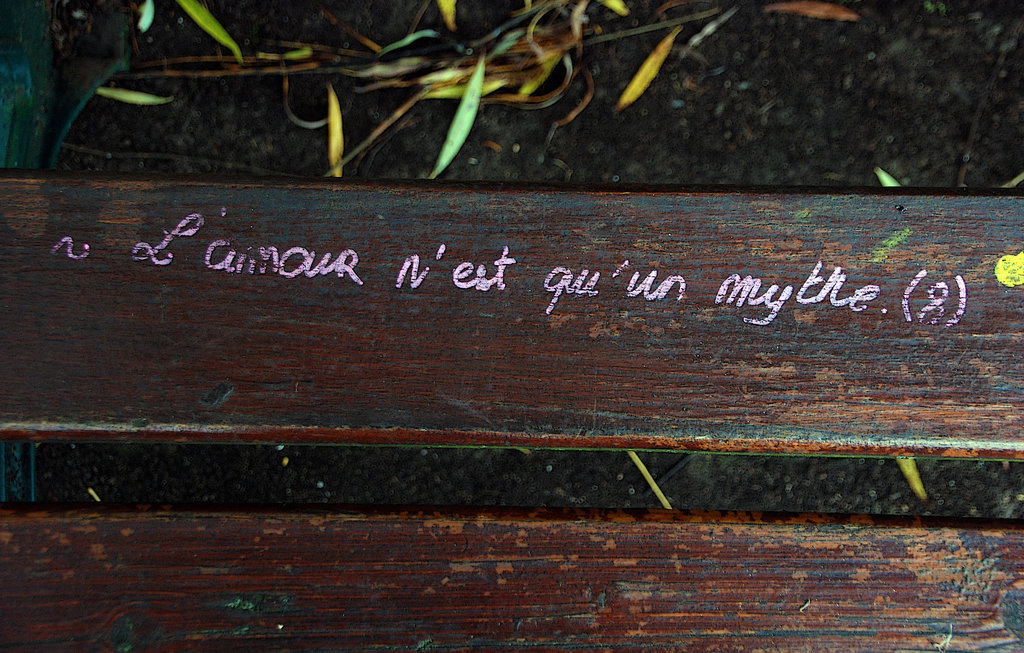 ~ L'amour n'est qu'un mythe. (R)